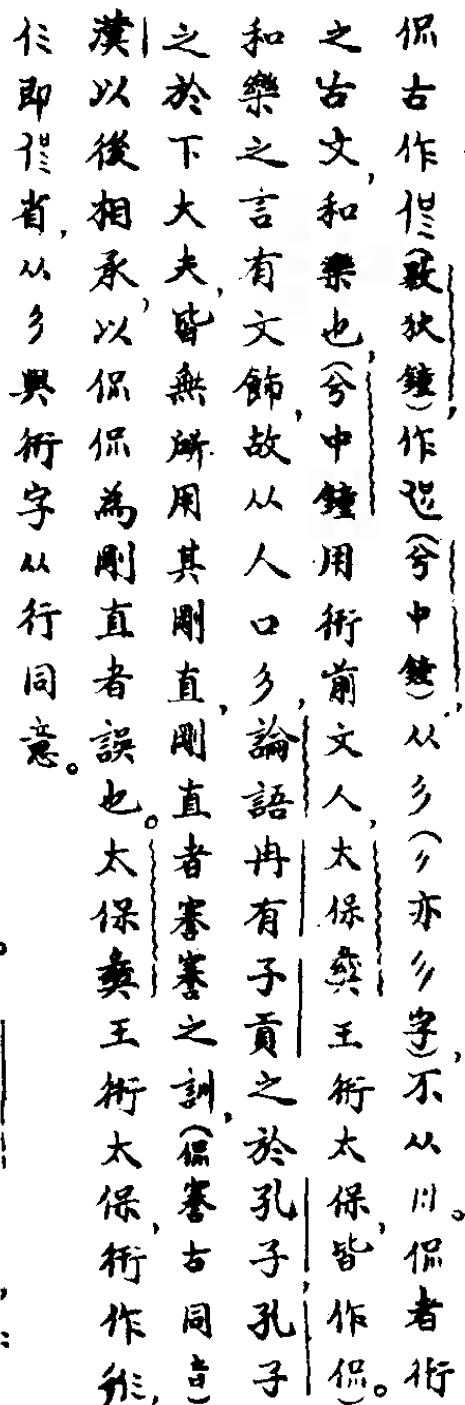 侃古作𠈉(𣪘狄鐘)作(兮中鐘)从彡(彡亦彡字),不从川。侃者衎
之古文,和樂也,(兮中鐘用衎前文人,太保彝王衎太保,皆作侃)。
和樂之言有文飾,故从人口彡,論語冉有子貢之於孔子,孔子
之於下大夫,皆無所用其剛直,剛直者謇謇之訓,(侃謇古同音)
漢以後相承,以侃侃為剛直者誤也。太保彝王衎太保,衎作,
即省,从彡與衎字从行同意。